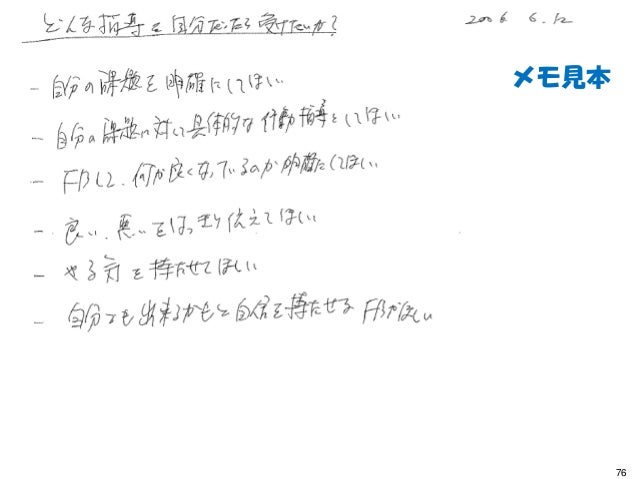 どんな指導を自分だったら受けたいか? 2006 6.12
メモ見本
- 自分の課題を明確にしてほしい
- 自分の課題に対して具体的な行動指導をしてほしい
- FBして、何が良くなっているのか明確にしてほしい
- 良い、悪いをはっきり伝えてほしい
- やる気を持たせてほしい
- 自分でも出来るかもと自信を持たせるFBがほしい
76